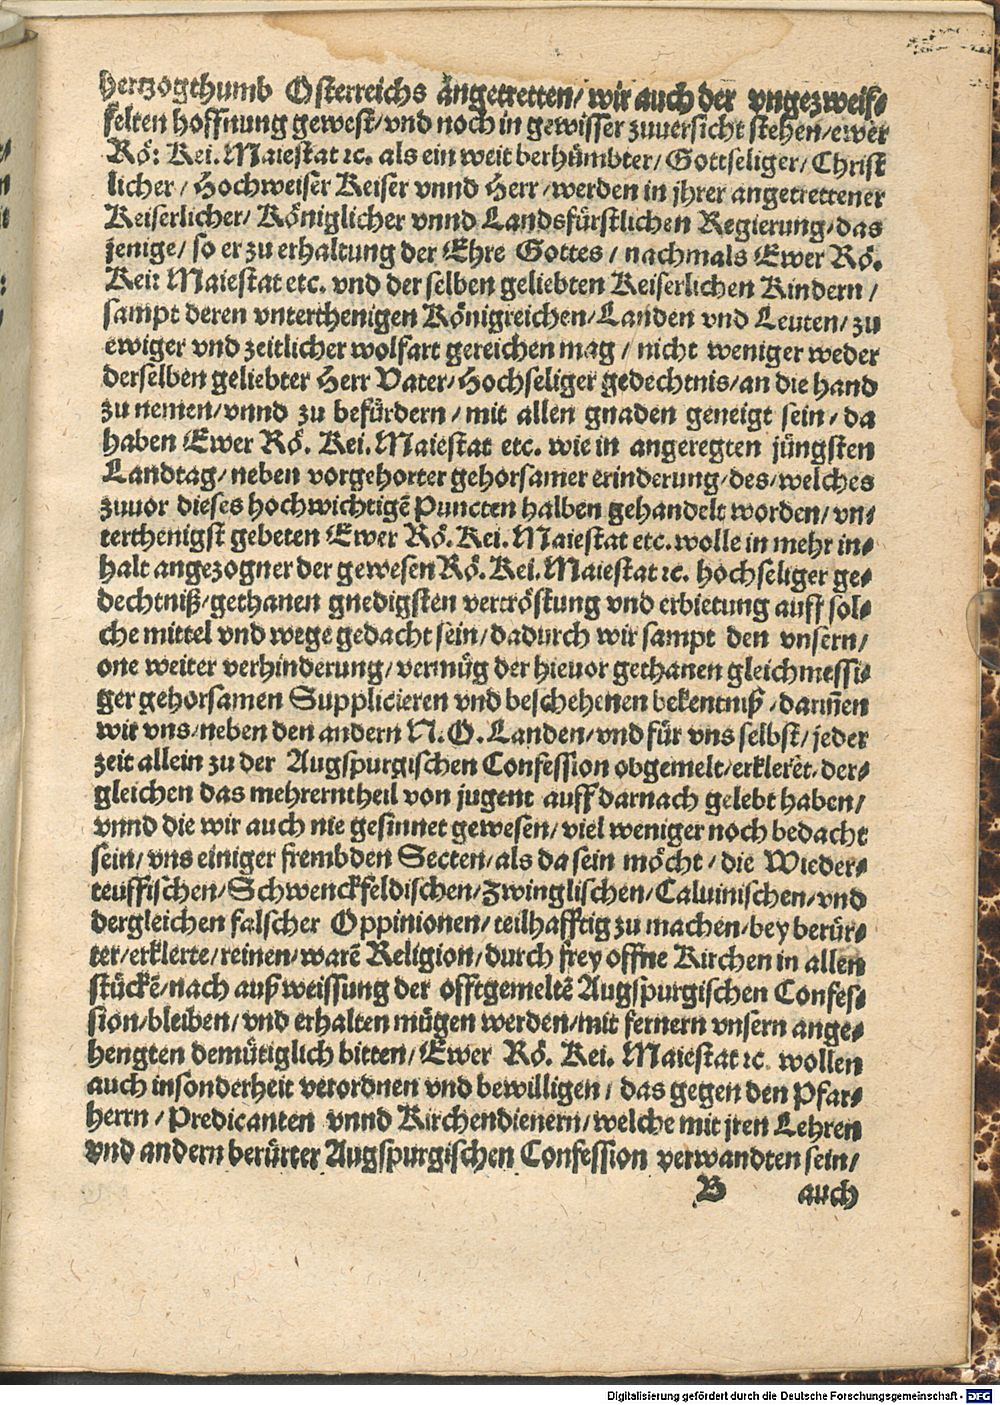 hertzogthumb Osterreichs angetretten/ wir auch der vngezweif⸗
felten hoffnung gewest/ vnd noch in gewisser zuuersicht stehen/ ewer
Rö: Kei. Maiestat ꝛc. als ein weit berhümbter/ Gottseliger/ Christ
licher/ Hochweiser Keiser vnnd Herr/ werden in jhrer angetrettener
Keiserlicher/ Königlicher vnnd Landsfürstlichen Regierung/ das
jenige/ so er zu erhaltung der Ehre Gottes/ nachmals Ewer Rö.
Kei: Maiestat etc. vnd der selben geliebten Keiserlichen Kindern/
sampt deren vnterthenigen Königreichen/ Landen vnd Leuten/ zu
ewiger vnd zeitlicher wolfart gereichen mag/ nicht weniger weder
derselben geliebter Herr Vater/ Hochseliger gedechtnis/ an die hand
zu nemen/ vnnd zu befürdern/ mit allen gnaden geneigt sein/ da
haben Ewer Rö. Kei. Maiestat etc. wie in angeregten jüngsten
Landtag/ neben vorgehorter gehorsamer erinderung/ des/ welches
zuuor dieses hochwichtigē Puncten halben gehandelt worden/ vn⸗
terthenigst gebeten Ewer Rö. Kei. Maiestat etc. wolle in mehr in⸗
halt angezogner der gewesen Rö. Kei. Maiestat ꝛc. hochseliger ge⸗
dechtniß/ gethanen gnedigsten vertröstung vnd erbietung auff sol⸗
che mittel vnd wege gedacht sein/ dadurch wir sampt den vnsern/
one weiter verhinderung/ vermüg der hieuor gethanen gleichmessi⸗
ger gehorsamen Supplicieren vnd beschehenen bekentniß/ dariñen
wir vns/ neben den andern N. O. Landen/ vnd für vns selbst/ jeder
zeit allein zu der Augspurgischen Confession obgemelt/ erkleret/ der⸗
gleichen das mehrerntheil von jugent auff darnach gelebt haben/
vnnd die wir auch nie gesinnet gewesen/ viel weniger noch bedacht
sein/ vns einiger frembden Secten/ als da sein möcht/ die Wieder⸗
teuffischen/ Schwenckfeldischen/ Zwinglischen/ Caluinischen/ vnd
dergleichen falscher Oppinionen/ teilhafftig zu machen/ bey berür⸗
ter/ erklerte/ reinen/ warē Religion/ durch frey offne Kirchen in allen
stückē/ nach außweissung der offtgemeltē Augspurgischen Confes⸗
sion/ bleiben/ vnd erhalten mügen werden/ mit fernern vnsern ange⸗
hengten demütiglich bitten/ Ewer Rö. Kei. Maiestat ꝛc. wollen
auch insonderheit verordnen vnd bewilligen/ das gegen den Pfar⸗
herrn/ Predicanten vnnd Kirchendienern/ welche mit jren Lehren
vnd andern berürter Augspurgischen Confession verwandten sein/
B auch
Digitalisierung gefördert durch die Deutsche Forschungsgemeinschaft - DFG